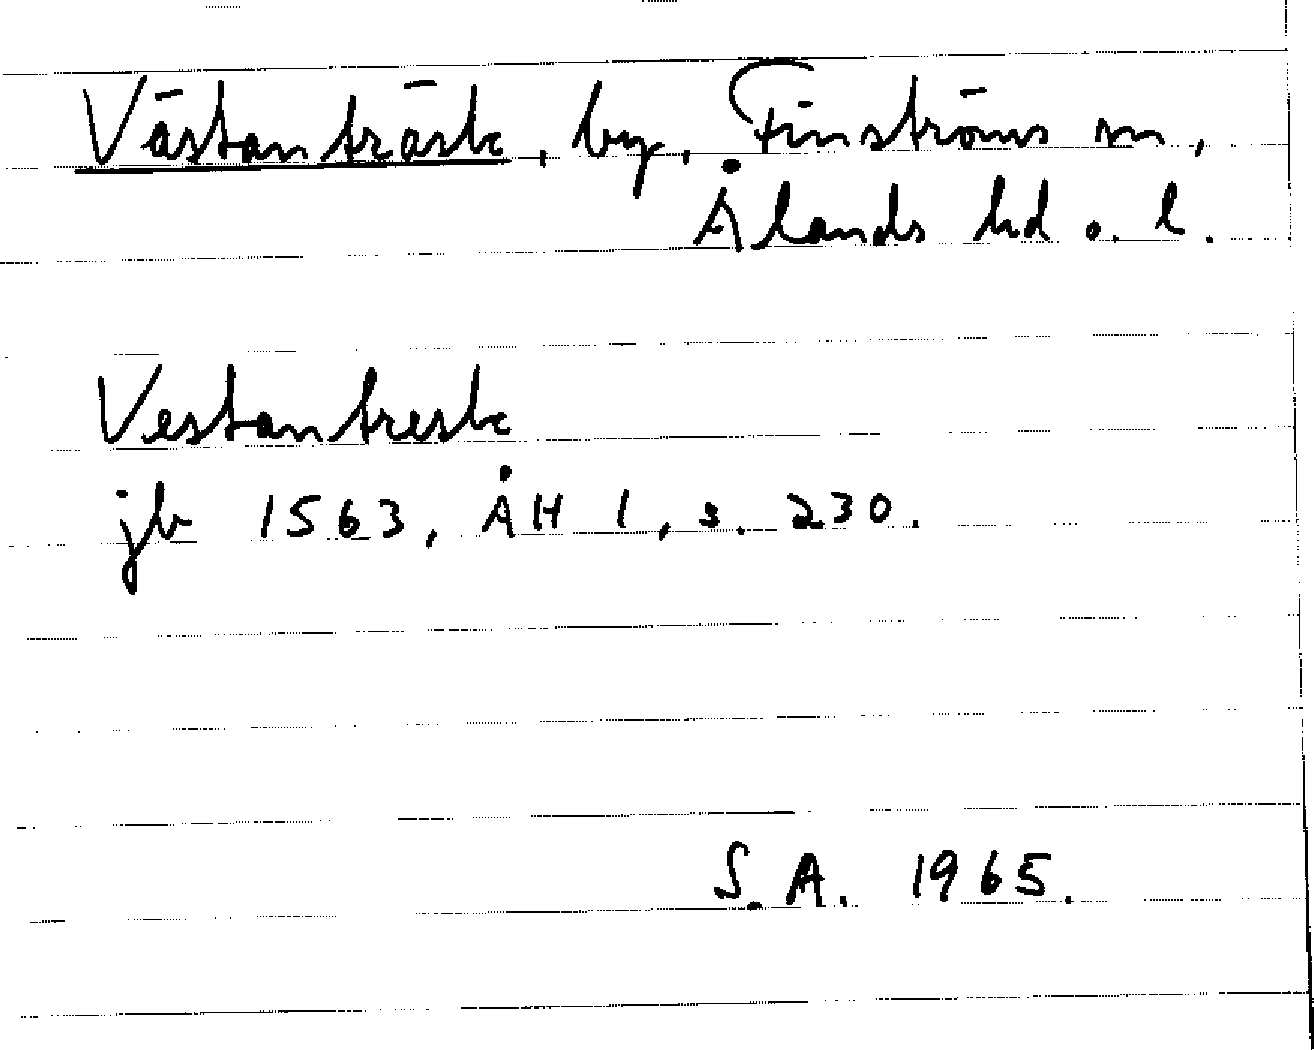 Västanträsk, by, Finströms sn,
Ålands hd o. l.
Vestantresk
jb 1563, ÅH 1, s. 230.
S.A. 1965.